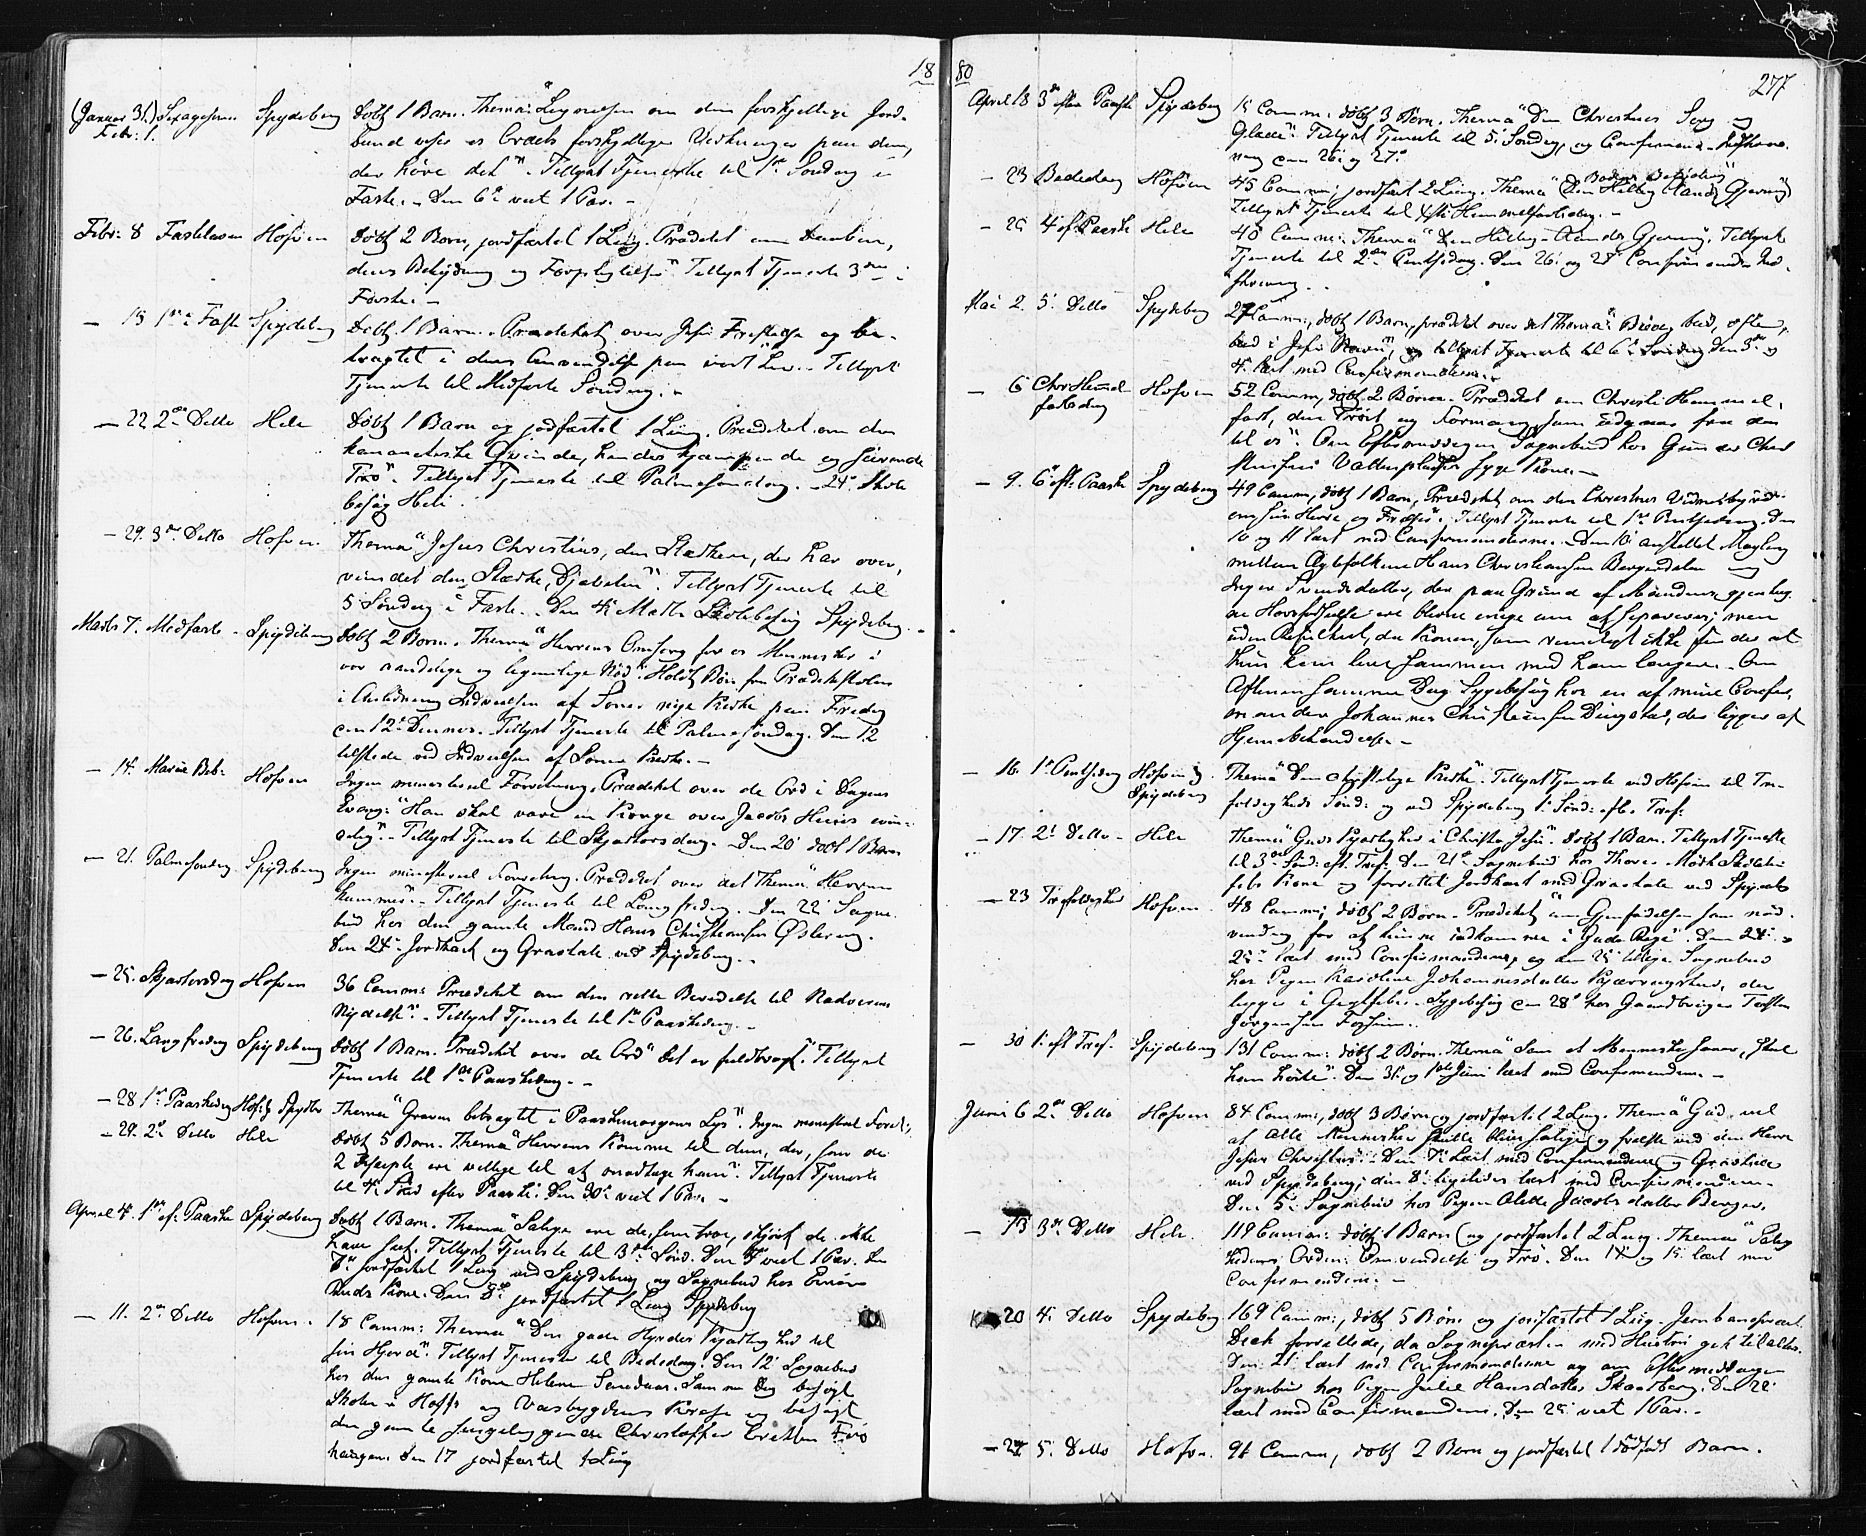 18
(Januar 31.) Sexagesima Spydeberg Døbt 1 Barn. Thema: "Lignelsen om den forskjellige Jord-
Febr: 1. bund viser os Ordets forskjellige Virkninger paa dem,
der høre det". Tillyst Tjeneste til 1ste Søndag i
Faste. - Den 6te viet 1 Par. -
Febr: 8 Fastelavn Hofvin Døbt 2 Børn, jordfæstet 1 Liig. Prædiket om Daaben,
dens Betydning og Forpligtelse". Tillyst Tjeneste 3die i
Faste. -
- 15 1ste i Faste Spydeberg Døbt 1 Barn. Prædiket over Jesu Fristelse og be-
tragtet i dens Anvendelse paa vort Liv. - Tillyst
Tjeneste til Midfaste Søndag. -
- 22 2den Ditto Heli Døbt 1 Barn og jordfæstet 1 Liig. Prædiket om den
kananæiske Qvinde, hendes kjæmpende og seirende
Tro". Tillyst Tjeneste til Palmesøndag. - 24de Skole
besøg Heli.
- 29. 3die Ditto Hofvin. Thema "Jesus Christus, den Stærkere, der har over-
vundet den Stærke, Djævelen". Tillyst Tjeneste til
5 Søndag i Faste. Den 4de Marts Skolebesøg Spydeberg.
Marts 7. Midfaste - Spydeberg Døbt 2 Børn. Thema "Herrens Omsorg for os Mennesker i
vor aandelige og legemlige Nød". Holdt Bøn fra Prædikestolen
i Anledning Indvielsen af Soner nye Kirke paa Fredag
den 12te Dennes. Tillyst Tjeneste til Palmesøndag. Den 12
tilstede ved Indvielsen af Soner Kirke. -
- 14. Mariæ Beb: Hofvin Ingen ministeriel Forretning. Prædiket over de Ord i Dagens
Evang: "Han skal være en Konge over Jacobs Huus evin-
delig". - Tillyst Tjeneste til Skjærtorsdag. - Den 20de døbt 1 Barn
- 21. Palmesøndag Spydeberg Ingen ministeriel Forretning. Prædiket over det Thema "Herren
kommer". - Tillyst Tjeneste til Langfredag. Den 22de Sogne-
bud hos den gamle Mand Hans Christiansen Østereng.
Den 24de Jordkast og Gravtale ved Spydeberg. -
- 25. Skjærtorsdag Hofvin 36 Comm: Prædiket om den rette Beredelse til Nadverens
Nydelse". - Tillyst Tjeneste til 1ste Paaskedag. -
- 26. Langfredag Spydeberg Døbt 1 Barn. Prædiket over de Ord "Det er fuldbragt". Tillyst
Tjeneste til 1ste Paaskedag. -
- 28 1ste Paaskedag Hof: & Spydeb Thema "Graven betragtet i Paaskemorgens Lys". Ingen ministeriel Forret:
- 29. 2den Ditto Heli Døbt 5 Børn. Thema "Herrens Komme til dem, der, som de
2 Disciple ere villige til at modtage ham". Tillyst Tjeneste
til 4de Sønd efter Paaske. Den 30te viet 1 Par. -
April 4. 1ste ef: Paaske Spydeberg Døbt 1 Barn. Thema "Salige ere de, som troe, skjønt de ikke
have seet. Tillyst Tjeneste til 3die Sønd. Den viet 1 Par. Den
7de jordfæstet 1 Liig ved Spydeberg og Sognebud hos
Kone. Den 8de jordfæstet 1 Liig Spydeberg
- 11. 2den Ditto Hofvin. 18 Comm: Thema "Den gode Hyrdes Kjærlighed til
sin Hjord". Tillyst Tjeneste til Bededag. Den 12te Sognebud
hos den gamle Kone Helene Sandaas. Samme Dag besøgt
Skolen i og Vasbygdens Kreds og besøgt
den gamle sengeliggende Christoffer Eriksen
haugen. Den 17 jordfæstet 1 Liig
80
277
April 18 3die efter Paaske Spydeberg 15 Comm: døbt 3 Børn. Thema "Den Christnes Sorg og
Glæde". Tillyst Tjeneste til 5te Søndag, og Confirmand-Indskriv-
ning den 26de og 27de
- 23 Bededag Hofvin 45 Comm; jordfæst 2 Liig. Thema "Bodens Betydning"
Tillyst Tjeneste til Chsti Himmelfartsdag. -
- 25 4de ef: Paaske Heli 40 Comm: Thema "Den Hellig-Aands Gjerning. Tillyst
Tjeneste til 2den Pintsedag. Den 26de og 27de Confirmander Ind-
skrivning. -
Mai 2. 5te Ditto Spydeberg 27 Comm:, døbt 1 Barn, prædiket over det Thema: "Bøn, bed, ofte,
bed i Jesu Navn", og tillyst Tjeneste til 6te Søndag Den 3die og
4de læst med Confirmanderne. -
- 6 Chr Himmel Hofvin 52 Comm, døbt 2 Børn. Prædiket om Christi Himmel-
fartsdag fart, den Trøst og Formaning, som udgaar fra den
til os". Om Eftermiddagen Sognebud hos Gunder Chri
stensens Vattenpladsen syge Kone. -
- 9. 6te eft: Paaske Spydeberg 49 Comm, døbt 1 Barn, Prædiket om den Christnes Vidnesbyrd
om sin Herre og Frelser". Tillyst Tjeneste til 1ste Pintsedag. Den
10 og 11 læst med Confirmanderne. Den 10de anstillet Mægling
mellem Ægtefolkene Hans Christiansen Bergerdalen og
Inger Svendsdatter, der paa Grund af Mandens gjentag-
ne Hoer ere blevne enige om at separeres; men
uden Resultat, da Konen, som rimeligt ikke fandt at
kunne leve sammen med ham længere. Om
Aftenen samme Dag Sygebesøg hos en af mine Confir-
mander Johannes Christiansen Dingstad, der ligger af
Hjernebetændelse. -
- 16. 1ste Pintsedag Hofvin & Thema "Den christelige Kirke". Tillyst Tjeneste ved Hofvin til Tre-
Spydeberg foldigheds Sønd: og ved Spydeberg 1ste Sønd: eft. Tref:
- 17. 2den Ditto - Heli Thema "Guds Kjærlighed i Christo Jesu". Døbt 1 Barn. Tillyst Tjeneste
til 3die Sønd: eft. Tref: Den 21de Sognebud hos Thore
Kone og forrettet Jordkast med Gravtale ved Spydeb
- 23 Trefoldighed Hofvin. 48 Comm; døbt 2 Børn. Prædiket "om Gjenfødelsen som nød-
vendig for at kunne indkomme i Guds Rige". Den 24de og
25de læst med Confirmanderne, og den 25de tillige Sognebud
hos Pigen Karoline Johannesdatter Kjærringstad, der
ligger i Gigtfeber. Sygebesøg den 28de hos Gaardbruger Torsten
Jørgensen Fossum. -
- 30 1ste eft Tref. Spydeberg 131 Comm: døbt 2 Børn. Thema "Som et Menneske saaer, skal
han høste". Den 31te og 1ste Juni læst med Confirmanderne. -
Juni 6 2den Ditto Hofvin 84 Comm:, døbt 3 Børn og jordfæstet 2 Liig. Thema "Gud vil
at alle Mennesker skulle blive salige og frelste ved den Herre
Jesus Christus". Den 7de læst med Confirmanderne og Gravtale
ved Spydeberg; den 8de ligeledes læst med Confirmanderne.
Den 5te Sognebud hos Pigen Olette Jacobsdatter Berger.
- 13 3die Ditto Heli. 119 Comm: døbt 1 Barn og jordfæstet 2 Liig. Thema "Salig
hedens Orden: Omvendelse og Tro. Den 14 og 15 læst med
Confirmanderne. -
- 20 4de Ditto Spydeberg 169 Comm:, døbt 5 Børn og jordfæstet 1 Liig. Jernbanepræst
forrettede, da Sognepræsten med Hustru gik til Alters.
Den 21de læst med Confirmanderne og om Eftermiddagen
Sognebud hos Pigen Julie Hansdatter Skaarberg. Den 22de
læst med Confirmanderne. Den 25de viet 1 Par. -
- 27 5te Ditto Hofvin. 91 Comm, døbt 2 Børn og jordfæstet 1 dødfødt Barn.